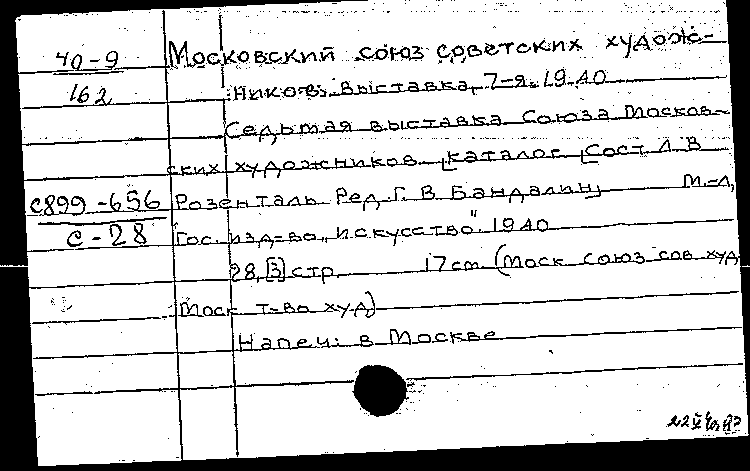 40-9
162
Московский союз советских худож-
ников. Выставка, 7-я. 1940
Седьмая выставка Союза Москов-
ских художников. [Каталог. [Сост. Л. В
с899-656
с-28
Розенталь Ред. Г. В Бандалин] М.-Л,
Гос. изд-во „Искусство". 1940
28, [3] стр. 17 cm (Моск союз сов худ
Моск т-во худ)
Напеч: в Москве